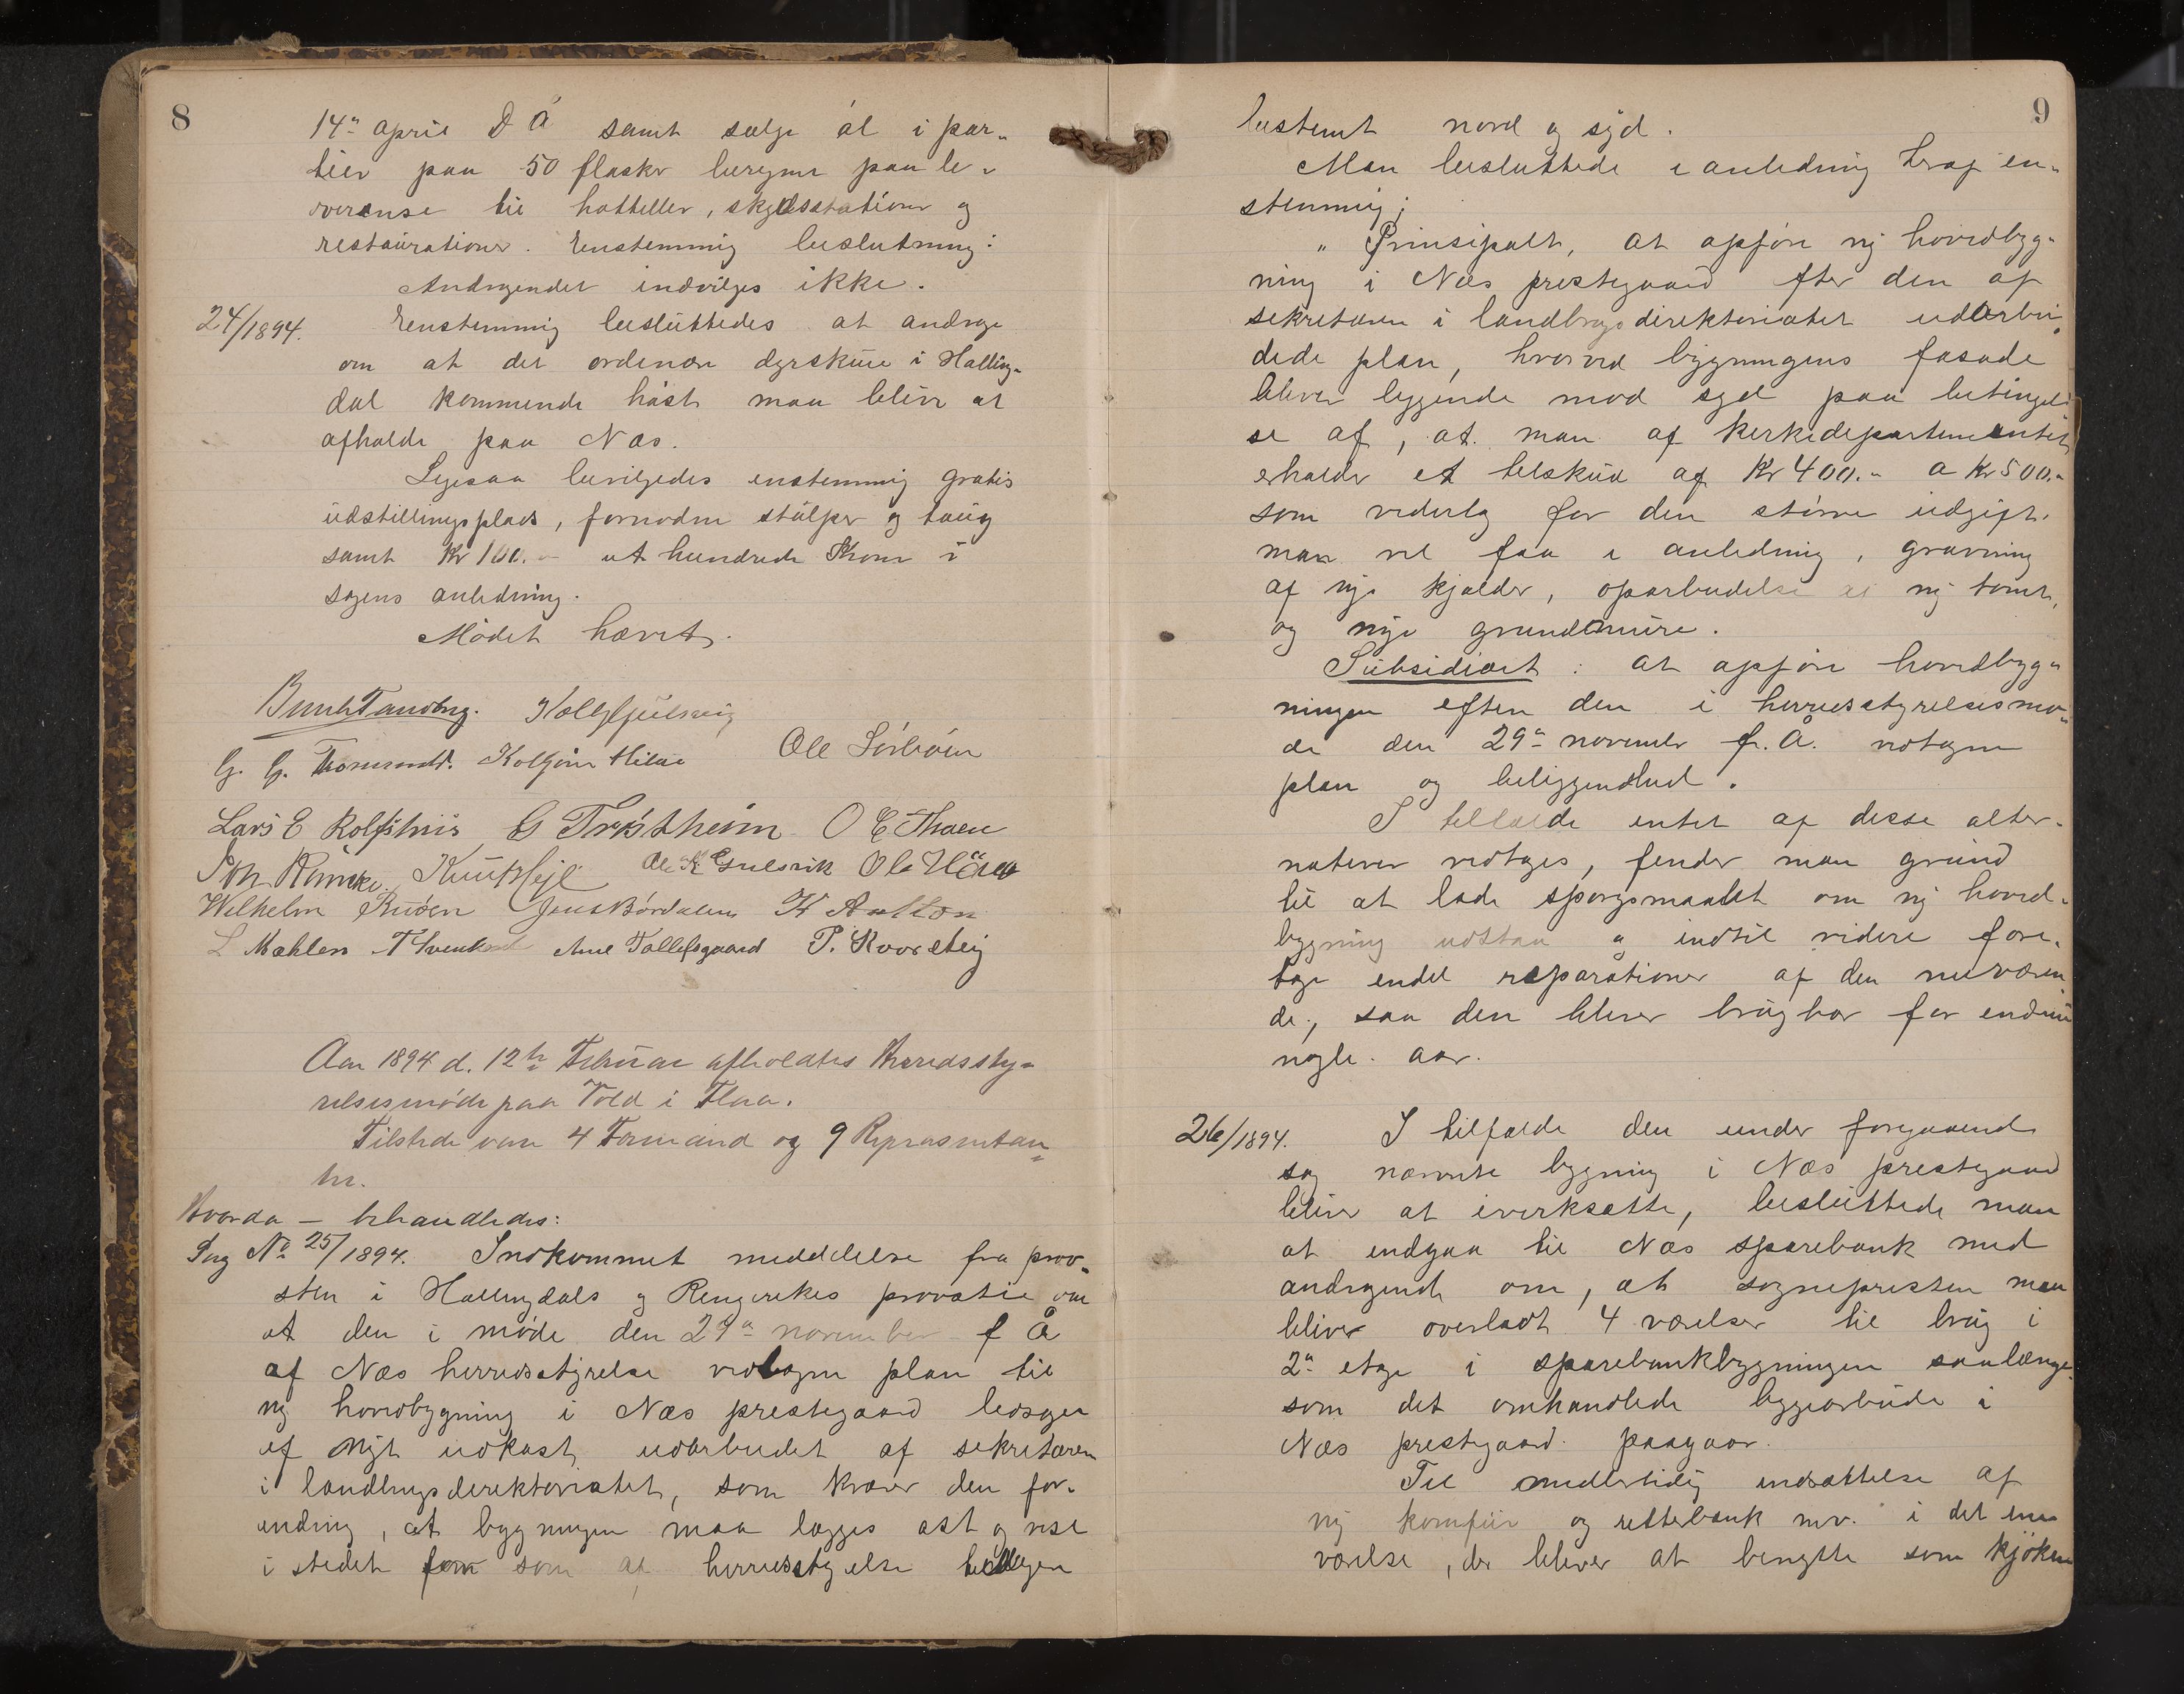 8
14de april d Å samt sælge øl i par-
tier paa 50 flasker
til hotteller, skydsstationer og
restaurationer. Eenstemmig beslutning:
Andragendet indvilges ikke.
24/1894. Eenstemmig besluttedes at andrage
om at det ordenære dyrskue i Halling-
dal kommende høst maa blive at
afholde paa Næs.
Ligesaa bevilgedes enstemmig gratis
udstillingsplads, fornødne stolper og taug
samt Kr 100.- et hundrede Kroner i
sagens anledning.
Mødet hævet.
Ole Sørbøen
G. G.
Lars E Rolfshus G Trøstheim O E Thoen
Ole K Gulsvik
Wilhelm Ruøen Jens Børdalen
L Mæhlen Arne Tollefsgaard
Aar 1894 d. 12te Februar afholdtes Herredssty-
relsesmøde paa Vold i Flaa.
Tilstede vare 4 Formænd og 9 Repræsentan-
ter.
Hvorda – behandledes:
Sag No 25/1894. Indkommet meddelelse fra prov-
sten i Hallingdals og Ringerikes provsti om
at den i møde den 29de november f Å
af Næs herredsstyrelse vedtagne plan til
ny hovedbygning i Næs prestegaard ledsaget
af nyt udkast udarbeidet af sekretæren
i landbrugsdirektoriatet, som kræver den for-
andring, at bygningen maa lægges øst og vest
i stedet for som af herredsstyrelse
9
bestemt nord og syd.
Man besluttede i anledning heraf en-
stemmig;
" Prinsipalt, at opføre ny hovedbyg-
ning i Næs prestegaard efter den af
sekretæren i landbrugsdirektoriatet udarbei-
dede plan, hvorved bygningens fasade
bliver liggende mod syd paa betingel-
se af, at man af kirkedepartementet
erholder et tilskud af Kr 400.- a Kr 500.-
som vederlag for den større udgift
man vil faa i anledning, gravning
af nye kjælder, oparbeidelse af ny tomt,
og nye grundmure.
Subsidiært : at opføre hovedbyg-
ningen efter den i herredsstyrelsesmø-
de den 29de november f. Å. vedtagne
plan og beliggenhed.
I tilfælde intet af disse alter-
nativer vedtages, finder man grund
til at lade spørgsmaalet om ny hoved-
bygning udstaa og indtil videre fore-
tage endel reparationer af den nuværen-
de, saa den bliver brugbar for endnu
nogle aar.
26/1894. I tilfælde den under foregaaende
sag nævnte bygning i Næs prestegaard
bliver at iverksætte, besluttede man
at indgaa til Næs sparebank med
andragende om, at sognepresten maa
blive overladt 4 værelser til brug i
2den etage i sparebankbygningen saalænge
som det omhandlede byggearbeide i
Næs prestegaard paagaar.
Til midlertidig indsættelse af
ny komfur og retterbænk mv. i det ene
værelse, der bliver at benytte som kjøken